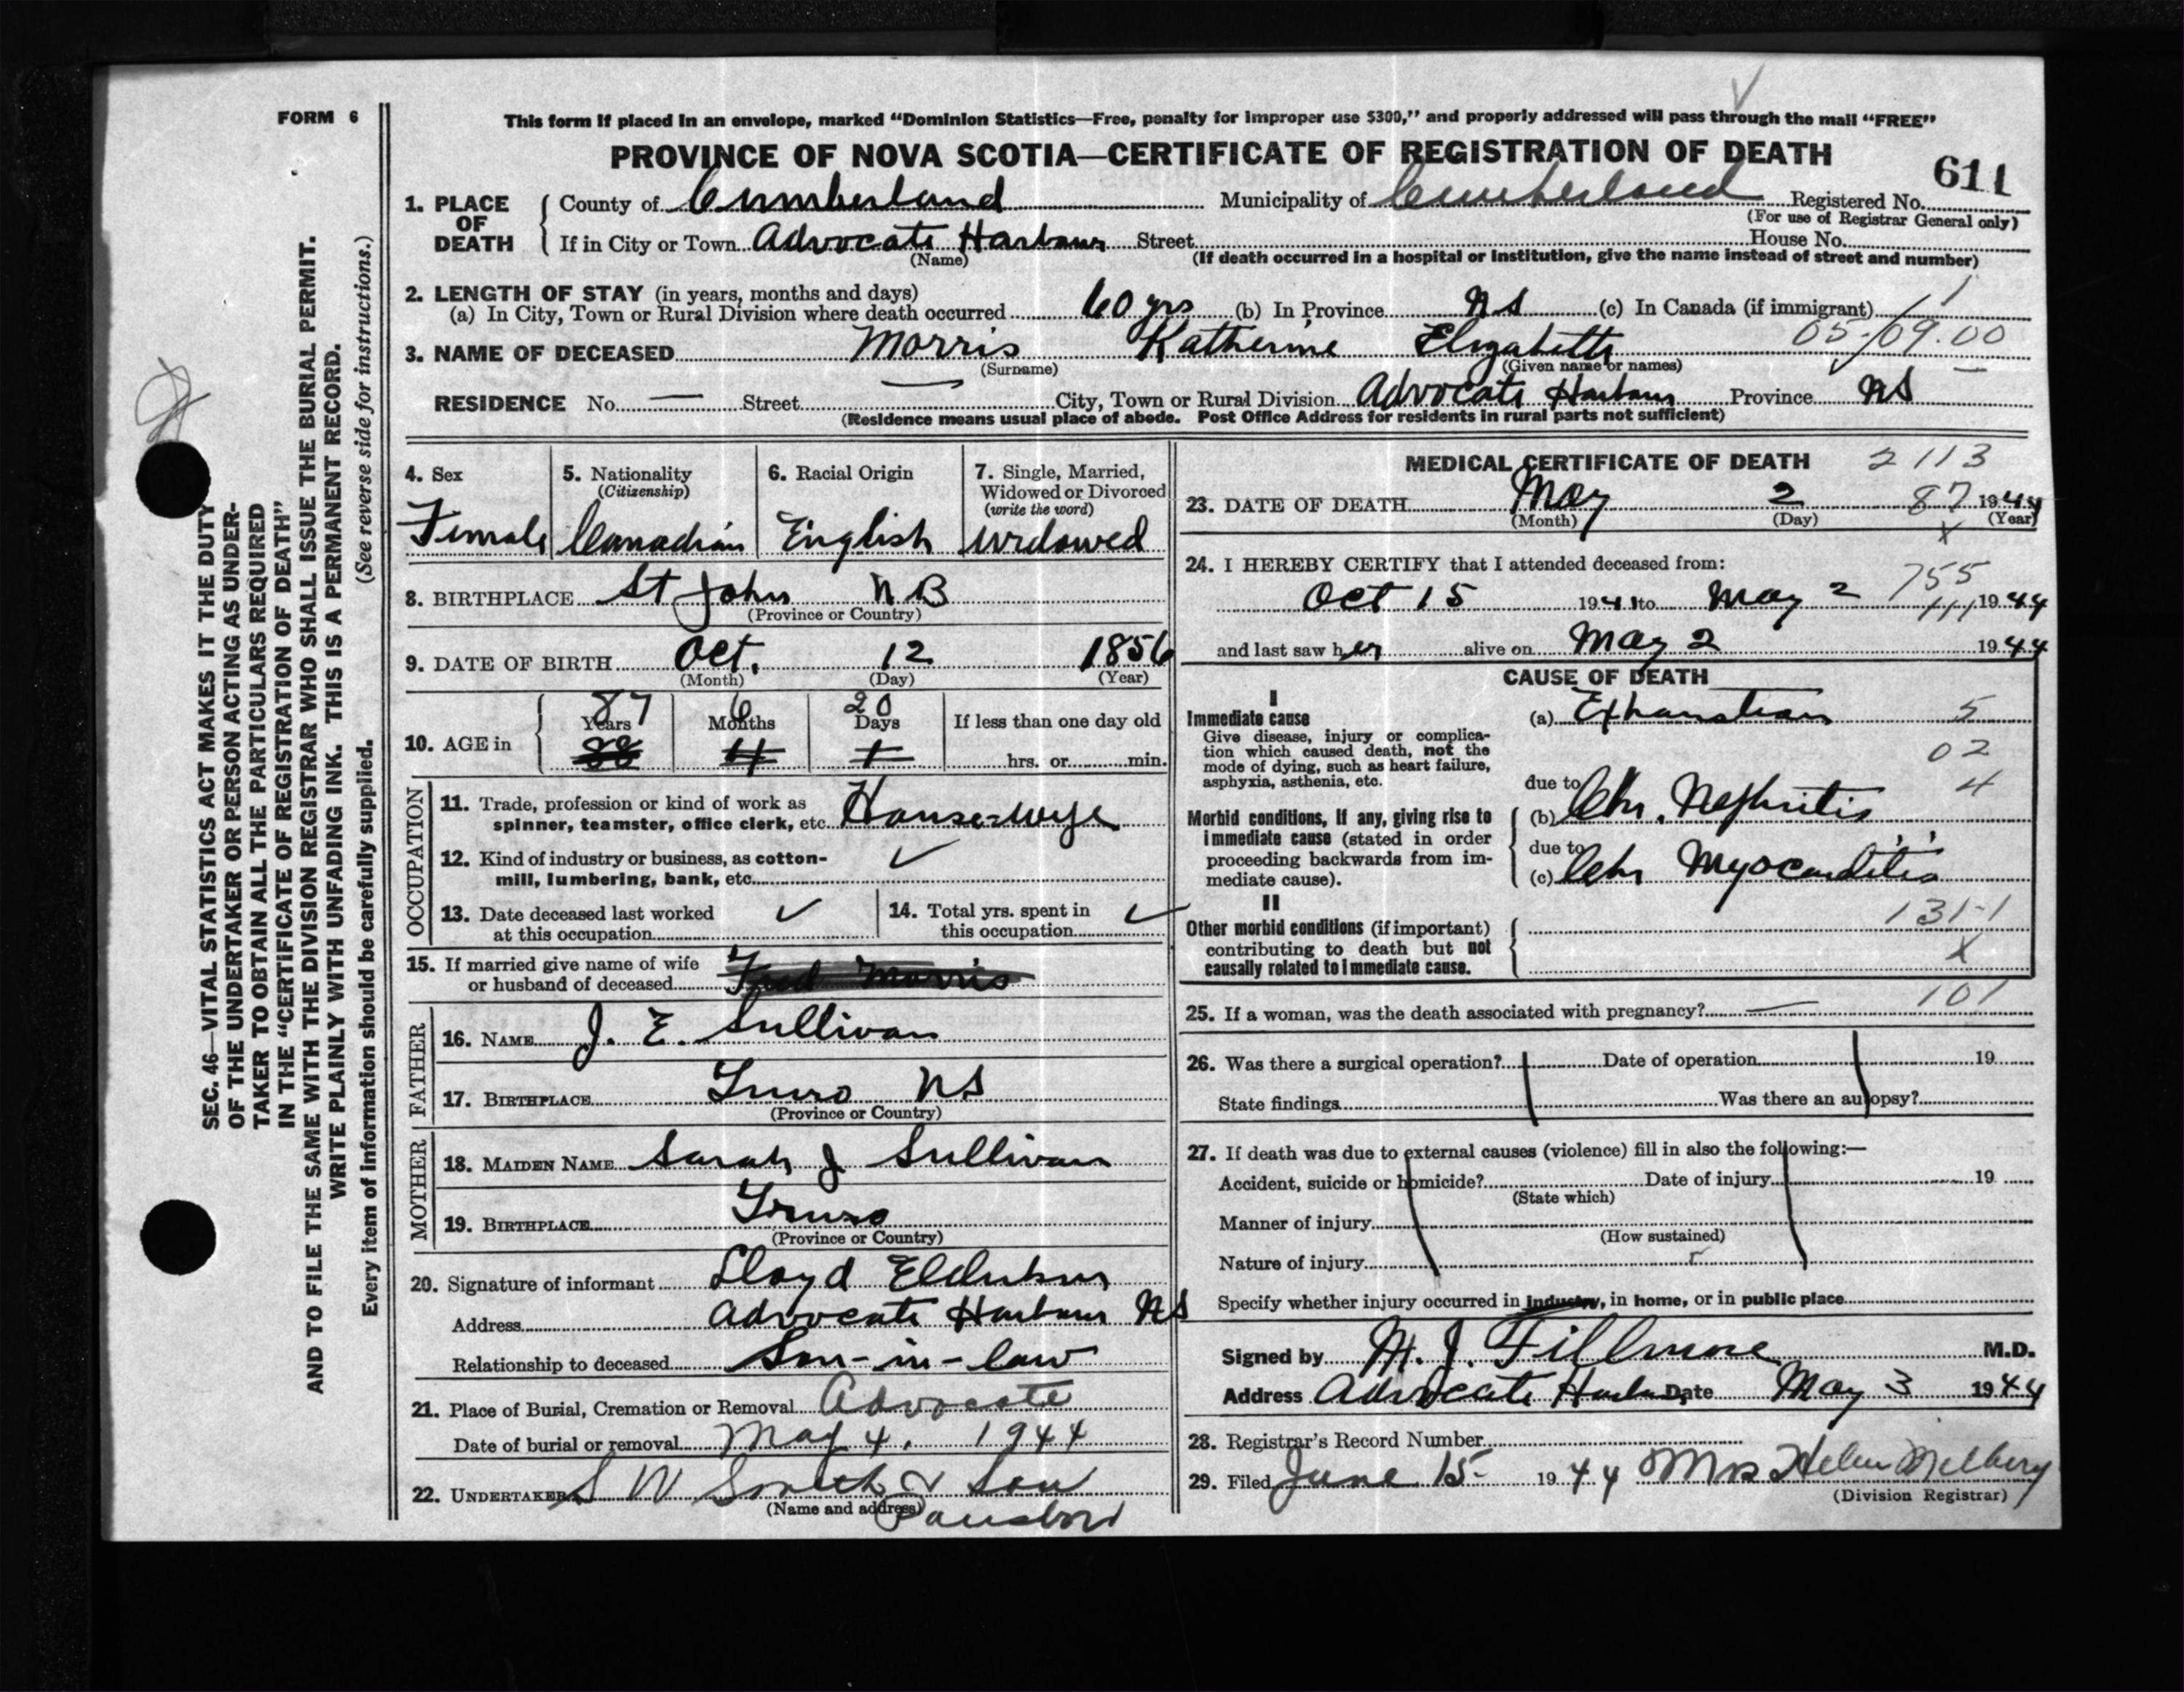 FORM 6
This form if placed in an envelope, marked "Dominion Statistics—Free, penalty for improper use $300," and properly addressed will pass through the mail "FREE"
PROVINCE OF NOVA SCOTIA—CERTIFICATE OF REGISTRATION OF DEATH
611
1. PLACE OF DEATH
County of Cumberland Municipality of Cumberland Registered No.
(For use of Registrar General only)
If in City or Town Advocate Harbour Street House No.
(Name) (If death occurred in a hospital or institution, give the name instead of street and number)
2. LENGTH OF STAY (in years, months and days)
(a) In City, Town or Rural Division where death occurred 60 yrs (b) In Province NS (c) In Canada (if immigrant)
05-/09.00
3. NAME OF DECEASED Morris Katherine Elizabeth
(Surname) (Given name or names)
RESIDENCE No. — Street — City, Town or Rural Division Advocate Harbour Province NS
(Residence means usual place of abode. Post Office Address for residents in rural parts not sufficient)
4. Sex
Female
5. Nationality
(Citizenship)
Canadian
6. Racial Origin
English
7. Single, Married, Widowed or Divorced
(write the word)
widowed
8. BIRTHPLACE St John NB
(Province or Country)
9. DATE OF BIRTH Oct. 12 1856
(Month) (Day) (Year)
10. AGE in
87 6 20
Years Months Days If less than one day old
88 hrs. or min.
OCCUPATION
11. Trade, profession or kind of work as spinner, teamster, office clerk, etc. House-wife
12. Kind of industry or business, as cotton-mill, lumbering, bank, etc. ✓
13. Date deceased last worked at this occupation ✓
14. Total yrs. spent in this occupation ✓
15. If married give name of wife or husband of deceased Fred Morris
FATHER
16. NAME J. E. Sullivan
17. BIRTHPLACE Truro NS
(Province or Country)
MOTHER
18. MAIDEN NAME Sarah J Sullivan
19. BIRTHPLACE Truro
(Province or Country)
20. Signature of informant Lloyd
Address Advocate Harbour NS
Relationship to deceased Son-in-law
21. Place of Burial, Cremation or Removal Advocate
Date of burial or removal May 4, 1944
22. UNDERTAKER S W Smith & Son
(Name and address)
MEDICAL CERTIFICATE OF DEATH 2113
23. DATE OF DEATH May 2 87 1944
(Month) (Day) (Year)
x
24. I HEREBY CERTIFY that I attended deceased from:
755
Oct 15 1941 to May 2 111 1944
and last saw her alive on May 2 1944
CAUSE OF DEATH
I
Immediate cause
Give disease, injury or complication which caused death, not the mode of dying, such as heart failure, asphyxia, asthenia, etc.
(a) Exhaustion 5
02
due to 4
Morbid conditions, if any, giving rise to immediate cause (stated in order proceeding backwards from immediate cause).
(b) Chr. Nephritis
due to
(c) Chr Myocarditis
II
131-1
Other morbid conditions (if important) contributing to death but not causally related to immediate cause.
X
101
25. If a woman, was the death associated with pregnancy? —
26. Was there a surgical operation? Date of operation 19
State findings Was there an autopsy?
27. If death was due to external causes (violence) fill in also the following:—
Accident, suicide or homicide? Date of injury 19
(State which)
Manner of injury
(How sustained)
Nature of injury
Specify whether injury occurred in industry, in home, or in public place
Signed by M. J. Fillmore M.D.
Address Advocate Harbour Date May 3 1944
28. Registrar's Record Number
29. Filed June 15- 1944 Mrs Helen
(Division Registrar)
SEC. 46—VITAL STATISTICS ACT MAKES IT THE DUTY
OF THE UNDERTAKER OR PERSON ACTING AS UNDER-
TAKER TO OBTAIN ALL THE PARTICULARS REQUIRED
IN THE "CERTIFICATE OF REGISTRATION OF DEATH"
AND TO FILE THE SAME WITH THE DIVISION REGISTRAR WHO SHALL ISSUE THE BURIAL PERMIT.
WRITE PLAINLY WITH UNFADING INK. THIS IS A PERMANENT RECORD.
Every item of information should be carefully supplied. (See reverse side for instructions.)